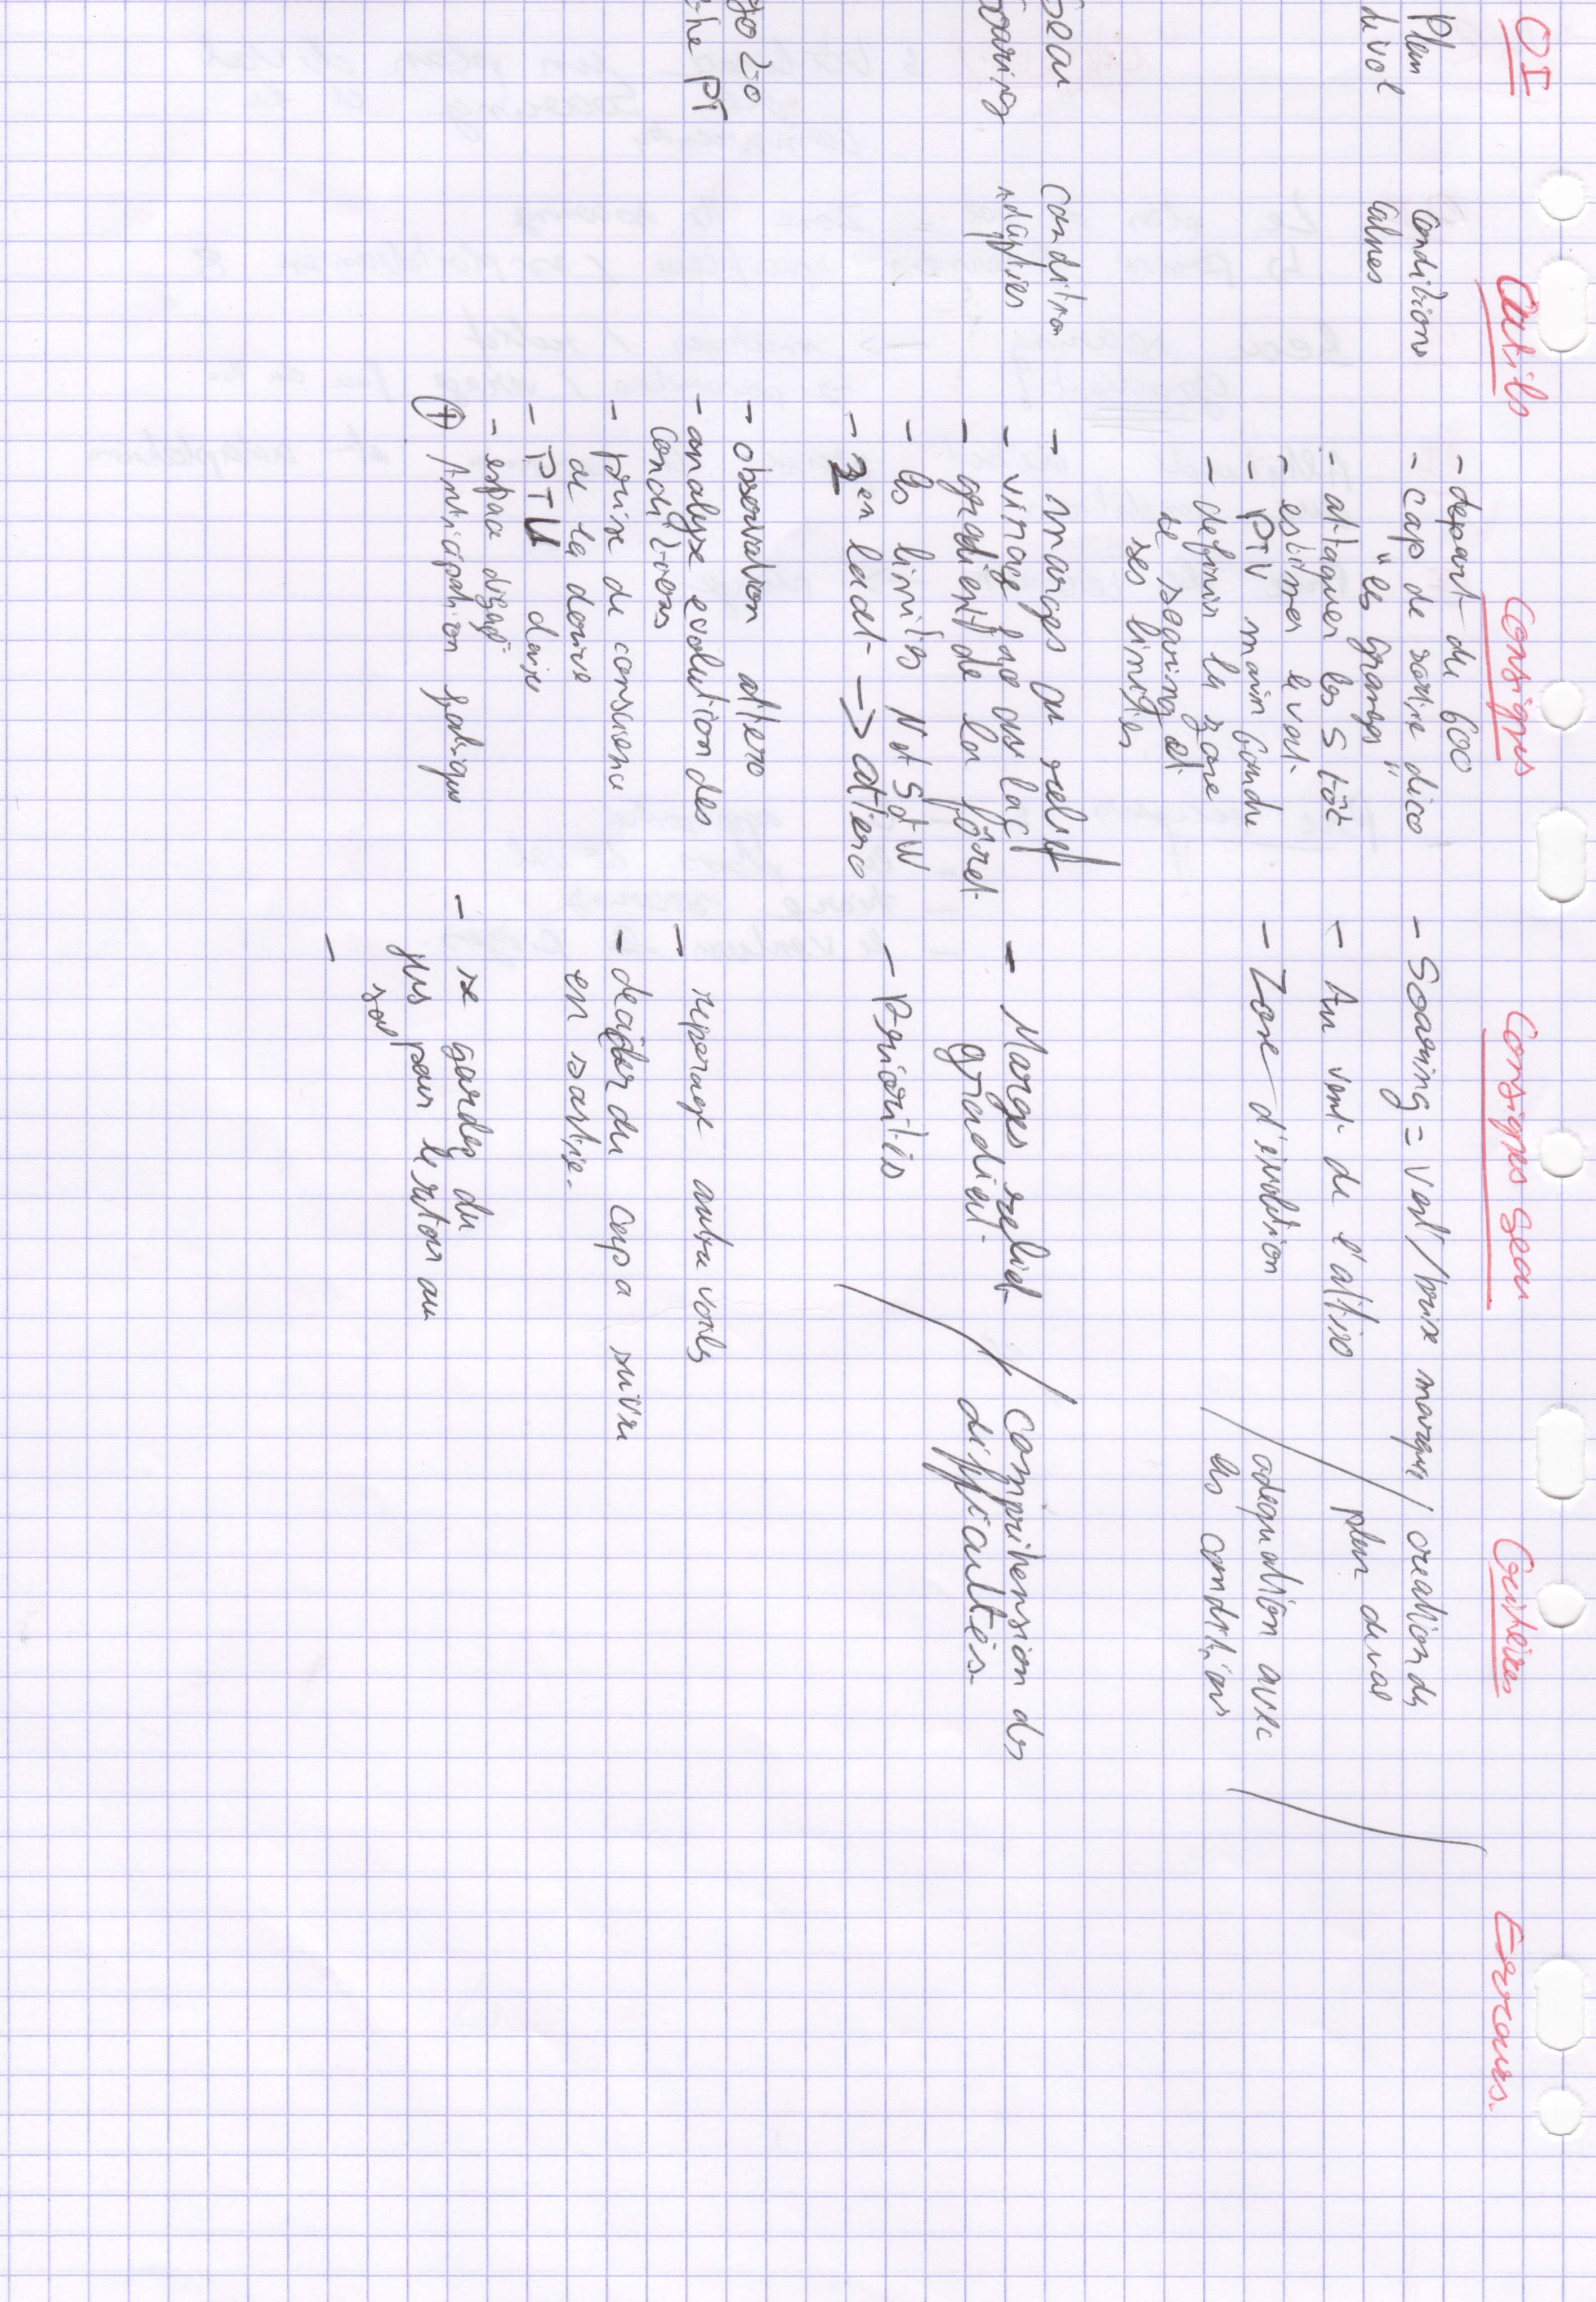 OI Outils Consignes Consignes Seau Critères Erreurs.
Plan
de vol
Conditions
Calmes
- depart du 600
- cap de sortie dico
"les granges"
- attaquer les S tôt
- estimer le vent
- PTV main lourde
- definir la zone
de soaring et
ses limites
- Soaring = vent/brise marqué / creation du
plan de vol
- Au vent de l'attero
- Zone d'évolution
/ adequation avec
les conditions
Seau
Soaring
Condition
adaptées
- marges au relief
- virage face au lac
- gradient de la forêt
- les limites N et S et W
- 2 en lact -> attero
- Marges relief
gradient
- Priorités
/ comprehension des
difficultés.
he PT
- observation attero
- analyse evolution des
conditions
- prise de conscience
de la derive
- PTU
- espace dégagé
⊕ Anticipation
- reperage autre voiles
- decider du cap a suivre
en sortie.
- se garder du
gas pour le retour au
sol
-